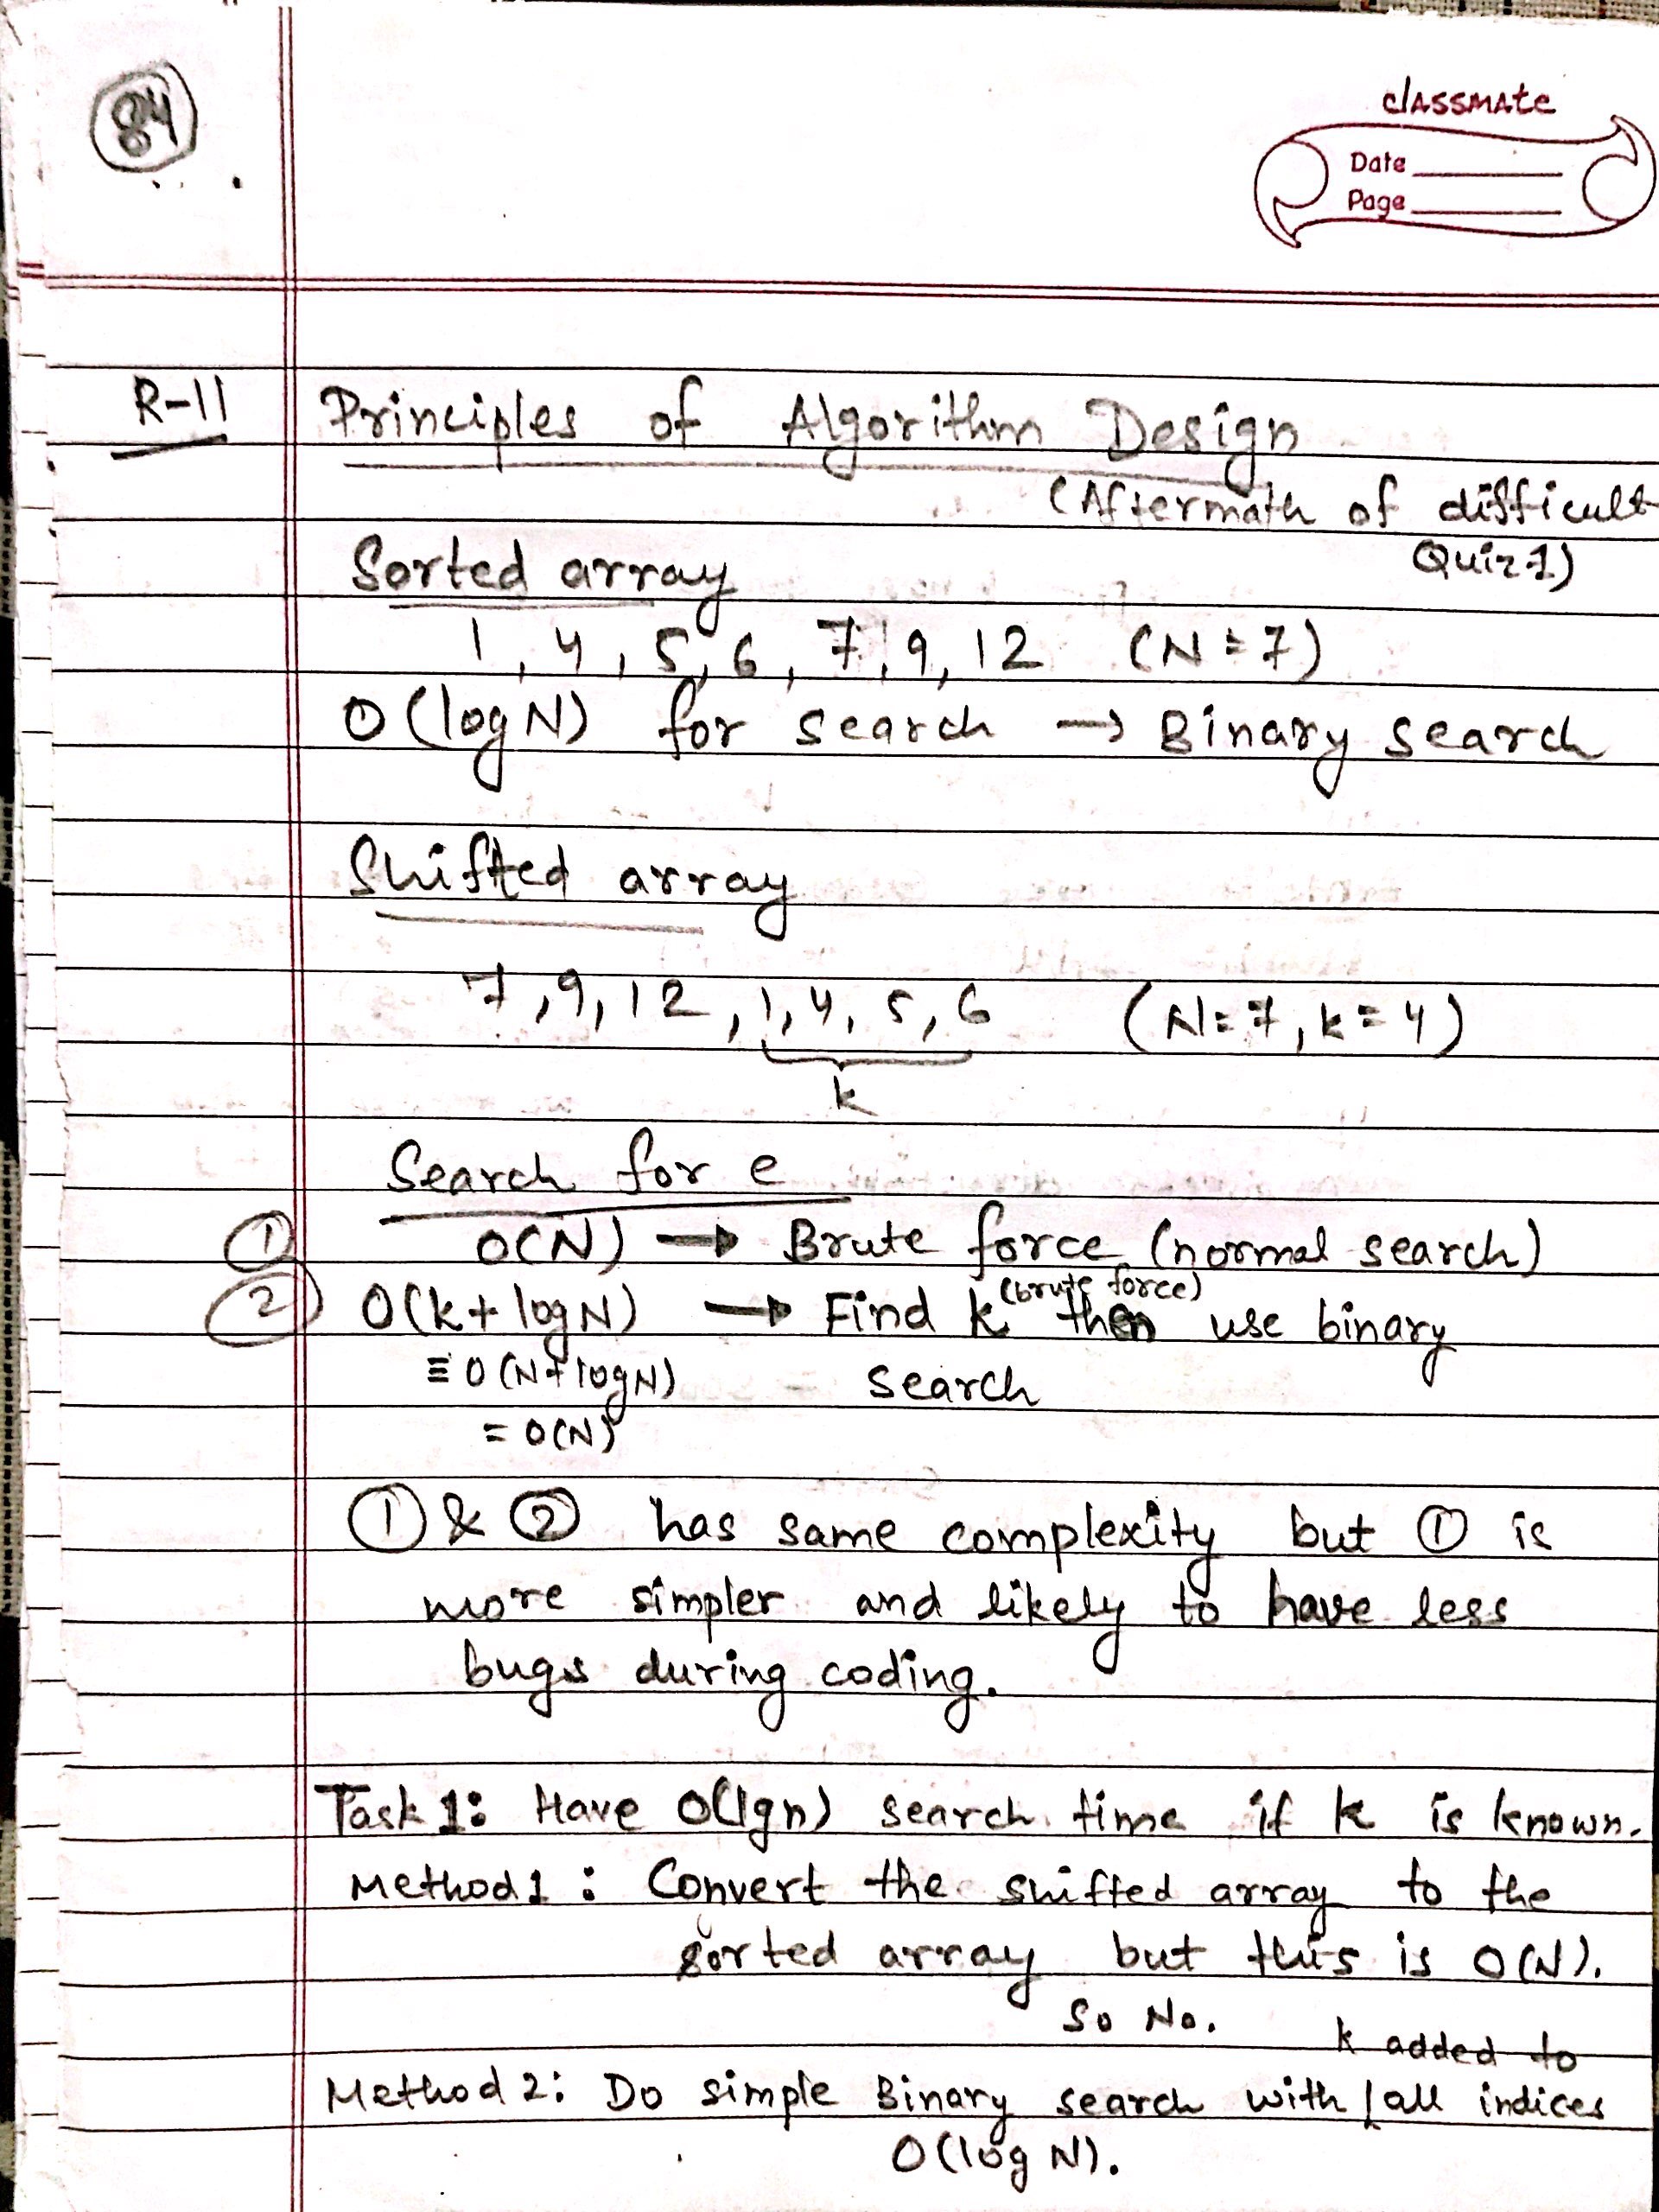 84
classmate
Date
Page
R-11 Principles of Algorithm Design
(Aftermath of difficult
Quiz 1)
Sorted array
1, 4, 5, 6, 7, 9, 12 (N=7)
O(log N) for search → Binary search
Shifted array
7, 9, 12, 1, 4, 5, 6 (N=7, k=4)
k
Search for e
① O(N) → Brute force (normal search)
(brute force)
② O(k + log N) → Find k then use binary
≡ O(N+logN) search
= O(N)
① & ② has same complexity but ① is
more simpler and likely to have less
bugs during coding.
Task 1: Have O(lgn) search time if k is known.
Method 1: Convert the shifted array to the
sorted array but this is O(N).
So No.
k added to
Method 2: Do simple Binary search with all indices
O(log N).